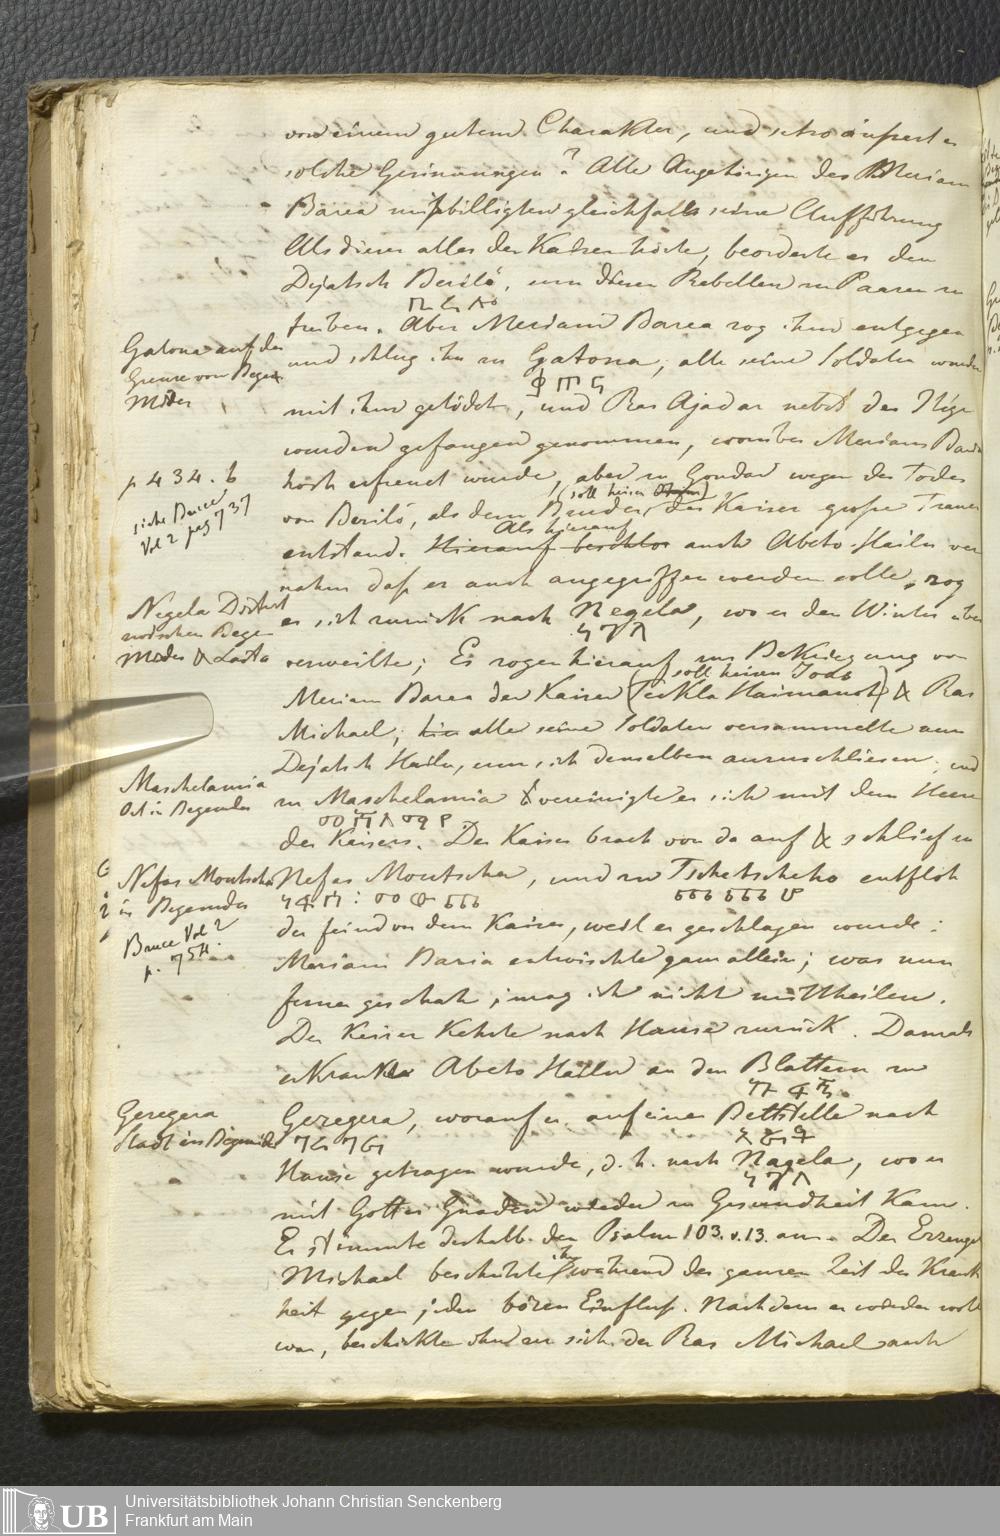 von einem guten Charakter, und etwo äußert er
solche Gesinnungen? Alle Angehörigen des Meriam
Barea mißbilligten gleichfalls seine Aufführung
Als dieses alles der Kaiser hörte, beorderte er den
Dejatsch Beriló, um diesen Rebellen zu Paaren zu
በርሎ
treiben. Aber Meriam Barea zog ihm entgegen
und schlug ihn zu Gatona, alle seine Soldaten wurden
mit ihm getödtet, und Ras Ajadar nebst der
wurden gefangen genommen, worüber Meriam Barea
hoch erfreut wurde, aber zu Gondar wegen des Todes
von Beriló, als dem Bruder (soll heisen) des Kaiser große Trauer
entstand. Hierauf beschlos Als hierauf auch Abeto Hailu ver
nahm daß er auch angegriffen werden solle, zog
er sich zurück nach Negela, wo er den Winter über
ነገላ
verweilte; Es zogen hierauf zur Bekriegung von
Meriam Barea der Kaiser (Teckla Haimanot soll heisen Joas) & Ras
Michael, hier alle seine Soldaten versammelte nun
Dejatsch Hailu, um sich denselben anzuschliesen, und
zu Maschelamia & vereinigte er sich mit dem Heere
መሸላምያ
des Keisers. Der Kaiser brach von da auf & schlief zu
Nefas Moutscha, und zu Tschetscheho entfloh
ነፋስ: መውጫ ጨጨሆ
der feind von dem Kaiser, weil er geschlagen wurde:
Meriam Baria entwischte ganz allein; was nun
ferner geschah, mag ich nicht mittheilen.
Der Keiser Kehrte nach Hause zurück. Damals
erkrankte Abeto Hailu an den Blattern zu
Geregera, worauf er auf einer Bettstelle nach
ገረገራ
Hause getragen wurde, d. h. nach Nagela, wo er
ነገላ
mit Gottes Gnaden wieder zu Gesundheit Kam.
Er stimmte deshalb den Psalm 103. v. 13. an. Der Erzengel
Michael beschützte ihn während der ganzen Zeit der Krank
heit gegen jeden bösen Einfluß. Nachdem er wieder wohl
war, beschickte ihn zu sich der Ras Michael nach
Gatona auf der
Grenze von Begem
Meder
p 434. b
siehe Bruce
Vol 2 pag 737
Negela District
zwischen Bege
Meder & Lasta
Maschelamia
Ort in Begemder
Nefas Moutscha
in Begemder
Bruce Vol 2
p.
Geregera
Stadt in Begemeder
Universitätsbibliothek Johann Christian Senckenberg
Frankfurt am Main
UB